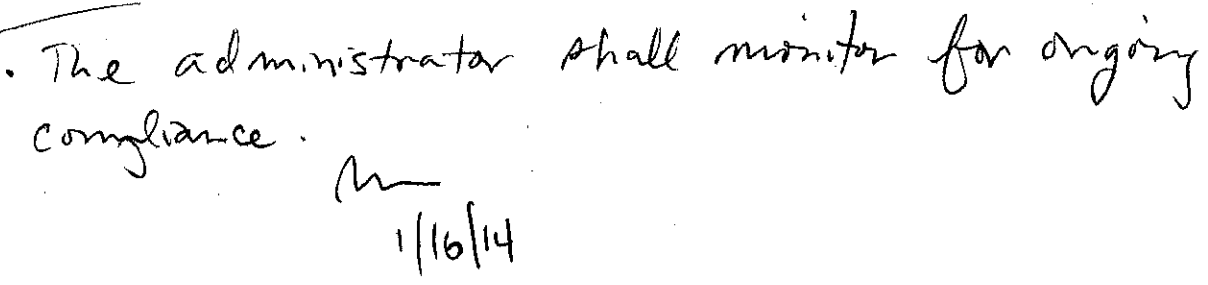 . The administrator shall monitor for ongoing
compliance.
1/16/14